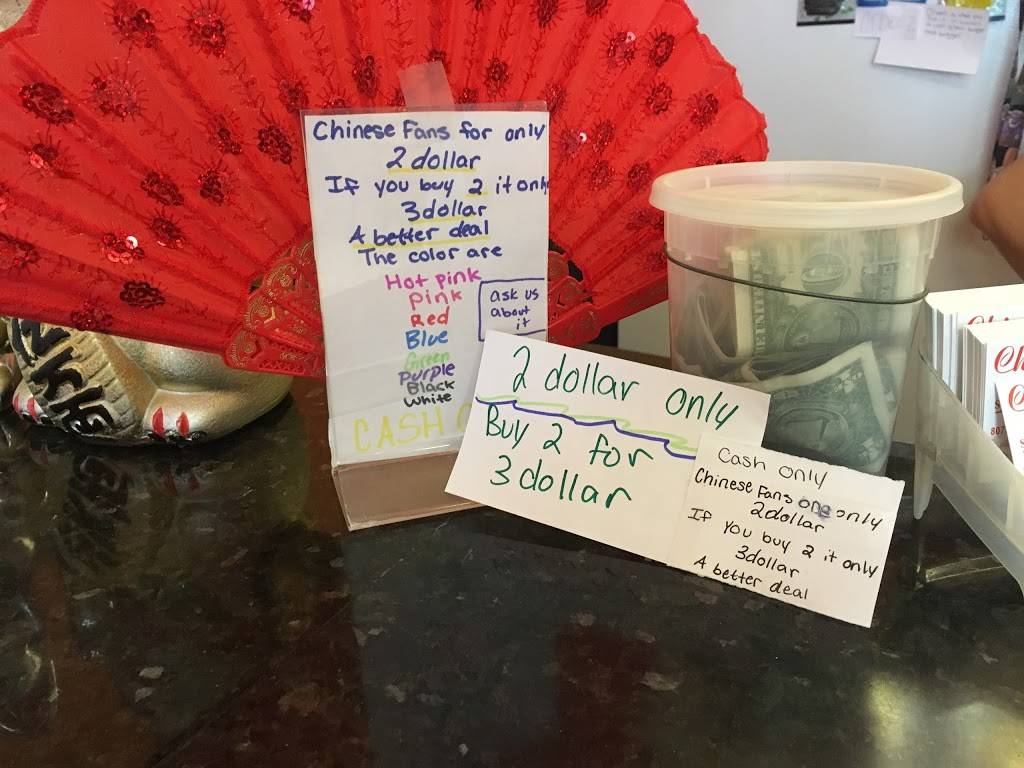 Chinese Fans for only
2 dollar
If you buy 2 it only
3dollar
A better deal
The color are
Hot pink
pink
Red
Blue
Green
purple
Black
White
ask us
about
it
CASH
2 dollar only
Buy 2 for
3 dollar
Cash only
Chinese Fans one only
2dollar
If you buy 2 it only
3dollar
A better deal